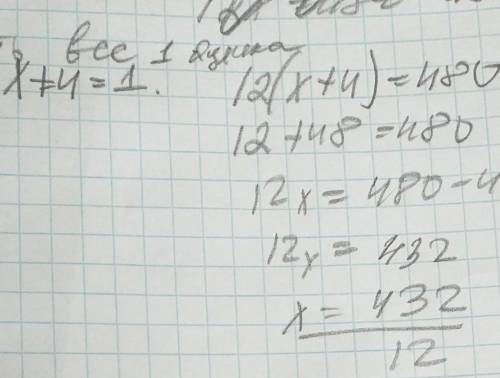 все 1
x+4=1. 12(x+4)=480
12+48=480
12x=480-4
12x=432
x=432
12